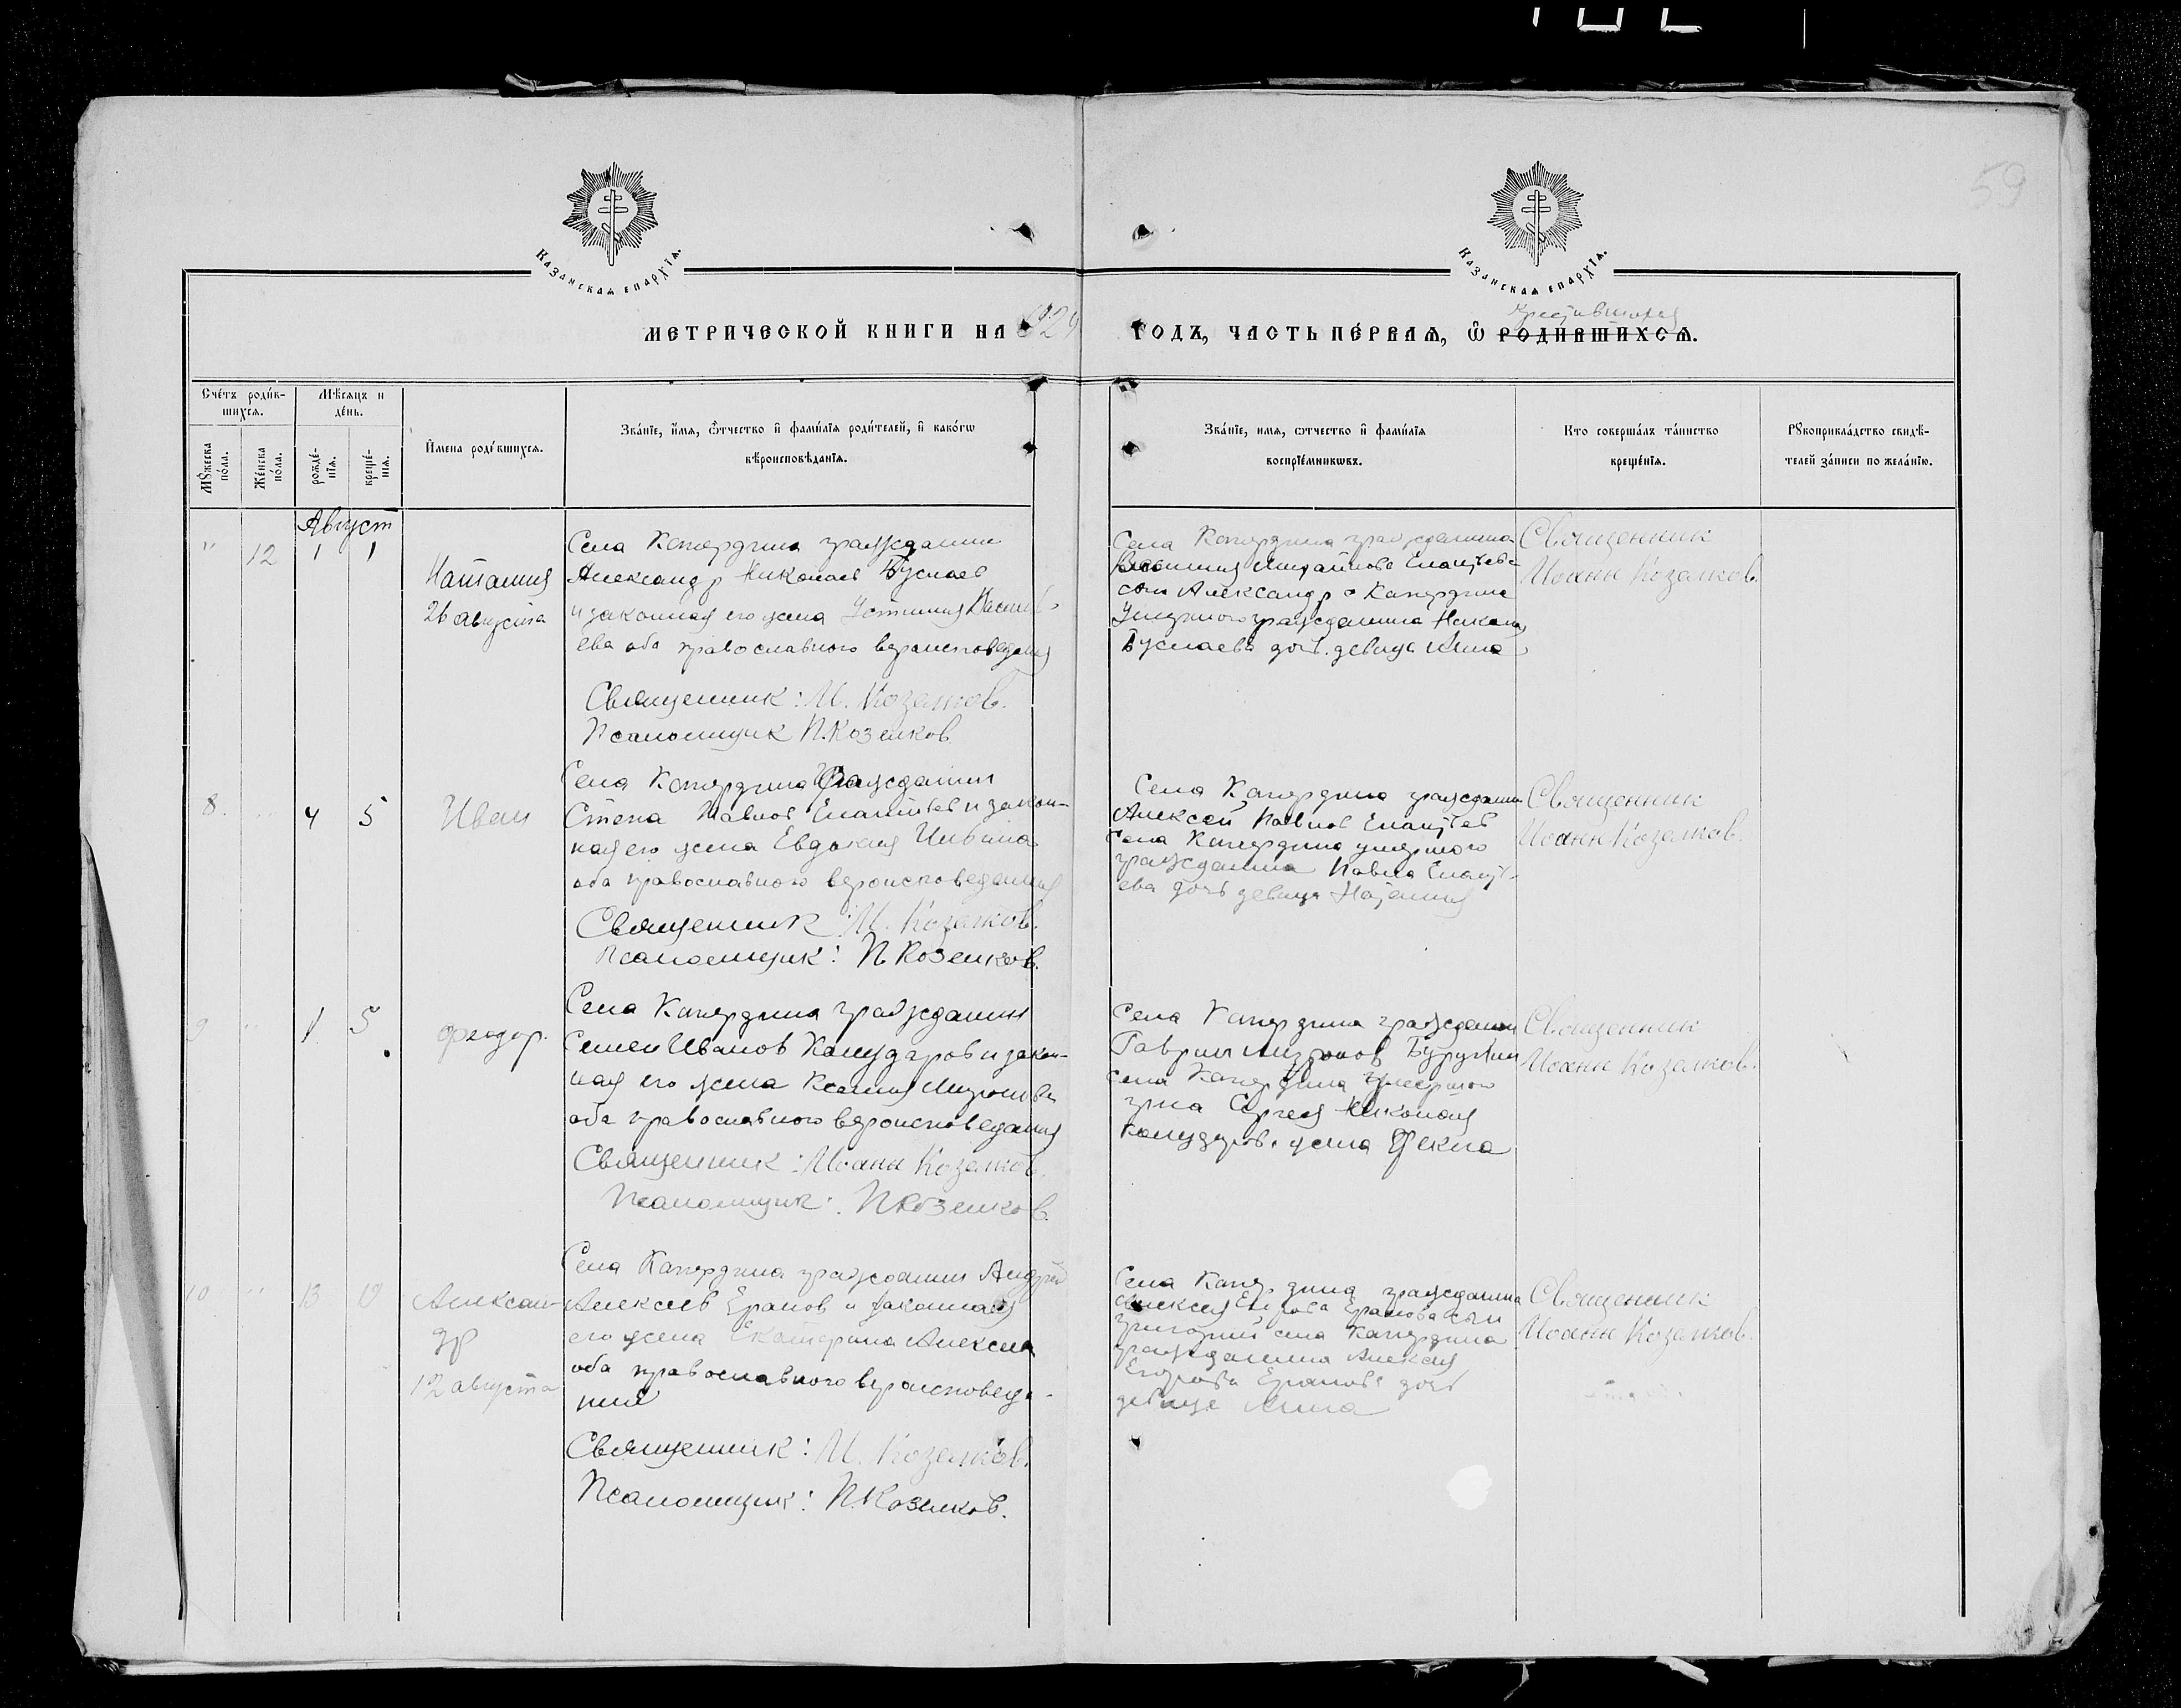 59
Казанская епархїя.
Казанская епархїя.
МЕТРИЧЕСКОЙ КНИГИ НА 1929
ГОДЪ, ЧАСТЬ ПЕРВАЯ, Ѡ РОДИВШИХСЯ.
Крестившихся
Счетъ родившихся.
Мѣсяцъ и день.
Мꙋжеска пола.
Женска пола.
рожденїя.
крещенїя.
Имена родившихся.
Званїе, имя, ѻтчество и фамилїя родителей, и какогѡ
вѣроисповѣданїя.
Званїе, имя, ѻтчество и фамилїя
воспрїемникѡвъ.
Кто совершалъ таинство
крещенїя.
Рꙋкоприкладство свидѣ-
телей записи по желанїю.
Август
" 12 1 1
Наталия
26 августа
Села Капердина гражданин
Александр Николаев Буслаев
и законная его жена Устиния Василь
ева оба православного вероисповедания
Священник: И. Козелков.
Псаломщик П. Козелков
Села Капердина гражданина
Михайлова
сын Александр с Капердина
Умершого гражданина Никола
Буслаева доч. девица Анна
Священник
Иоанн Козелков.
8. " 4 5
Иван
Села Капердина Гражданин
Степа Павлов и закон-
ная его жена Евдокия
оба православного вероисповедания
Священник И. Козелков.
Псаломщик: П. Козелков.
Села Капердина гражданин
Алексей Павлов
Села Капердина умершого
гражданина Павла
ева дочь девица Наталия
Священник
Иоанн Козелков.
9 " 1 5
Феодор.
Села Капердина гражданин
Семен Иванов и закон-
ная его жена Ксения
оба православного вероисповедания
Священник: Иоанн Козелков.
Псаломщик: П. Козелков.
Села Капердина гражданин
Гаврил
Села Капердина умершого
гр-на Сергея Николая
жена Фекла
Священник
Иоанн Козелков.
10 " 13
Алексан-
др
12 августа
Села Капердина гражданин Андрей
Алексеев Ермов и законная
его жена Екатерина Алексеева
оба православного вероисповеда-
ния
Священник: И. Козелков.
Псаломщик: П. Козелков.
Села Капердина гражданина
Алексея Егорова сын
Григорий села Капердина
гражданина Алексея
Егорова дочь
девица Анна
Священник
Иоанн Козелков.